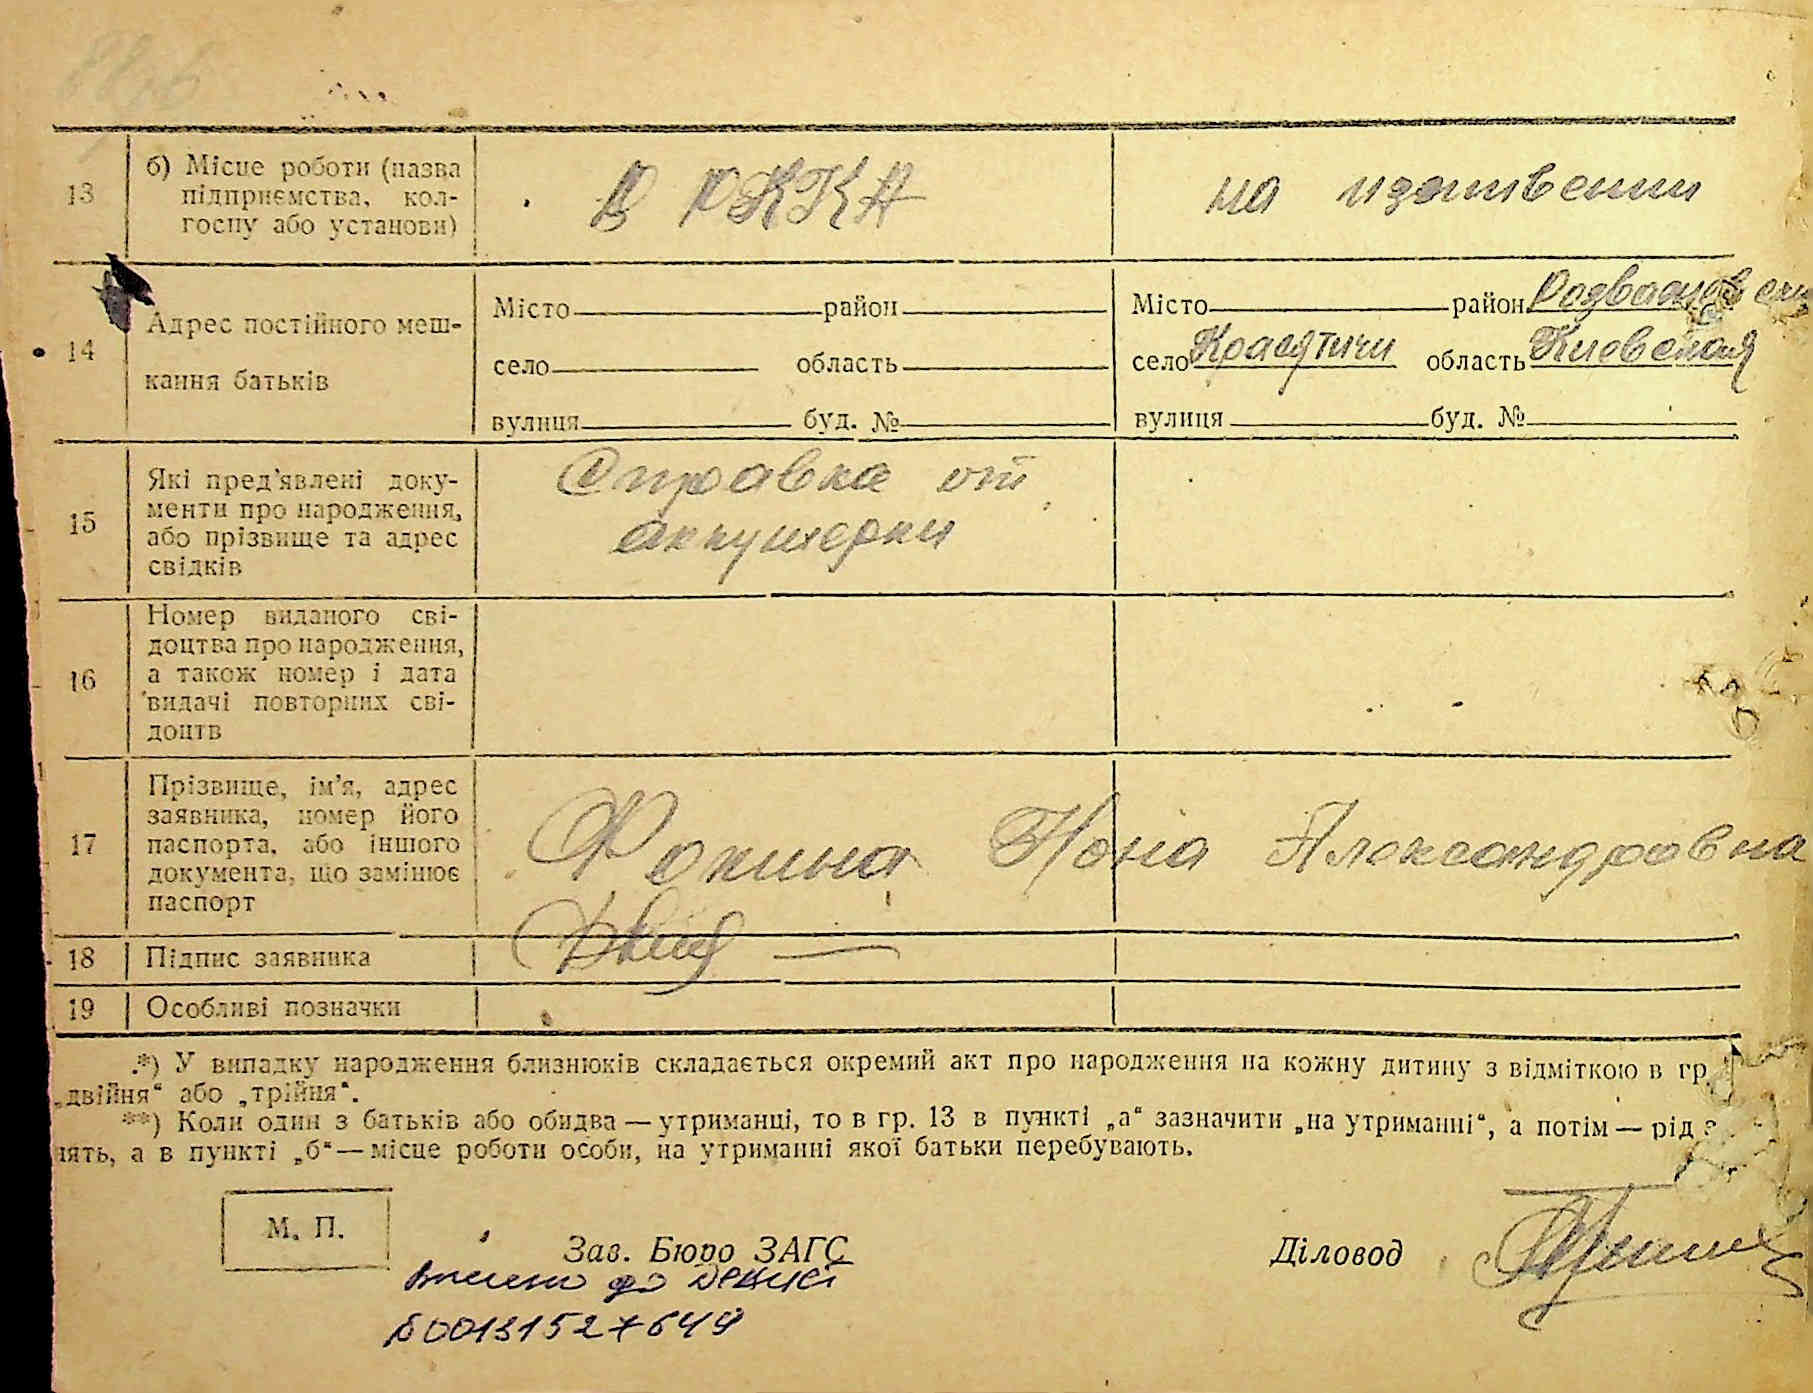 13 б) Місце роботи (назва
підприємства, кол-
госпу або установи)
В РККА
на иждивении
14 Адрес постійного меш-
кання батьків
Місто район
село область
вулиця буд. №
Місто район Розважевский
село Красятичи область Киевская
вулиця буд. №
15 Які пред'явлені доку-
менти про народження,
або прізвище та адрес
свідків
Справка от
аккушерки
16 Номер виданого сві-
доцтва про народження,
а також номер і дата
видачі повторних сві-
доцтв
17 Прізвище, ім'я, адрес
заявника, номер його
паспорта, або іншого
документа, що замінює
паспорт
Фокина Нона Александровна
18 Підпис заявника
19 Особливі позначки
*) У випадку народження близнюків складається окремий акт про народження на кожну дитину з відміткою в гр
„двійня“ або „трійня“.
**) Коли один з батьків або обидва — утриманці, то в гр. 13 в пункті „а“ зазначити „на утриманні“, а потім — рід з
нять, а в пункті „б“ — місце роботи особи, на утриманні якої батьки перебувають.
М. П.
Зав. Бюро ЗАГС
Діловод
Внесено до
Б00131527649